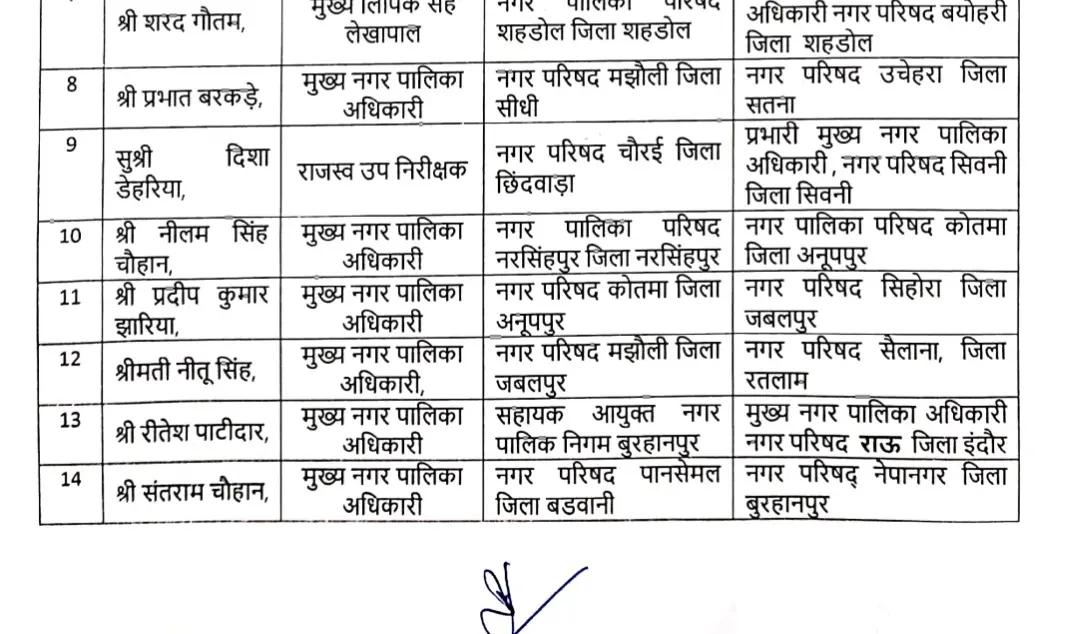 श्री शरद गौतम,
लेखापाल
शहडोल जिला शहडोल
अधिकारी नगर परिषद बयोहरी
जिला शहडोल
8
श्री प्रभात बरकड़े,
मुख्य नगर पालिका
अधिकारी
नगर परिषद मझौली जिला
सीधी
नगर परिषद उचेहरा जिला
सतना
9
सुश्री दिशा
डेहरिया,
राजस्व उप निरीक्षक
नगर परिषद चौरई जिला
छिंदवाड़ा
प्रभारी मुख्य नगर पालिका
अधिकारी, नगर परिषद सिवनी
जिला सिवनी
10
श्री नीलम सिंह
चौहान,
मुख्य नगर पालिका
अधिकारी
नगर पालिका परिषद
नरसिंहपुर जिला नरसिंहपुर
नगर पालिका परिषद कोतमा
जिला अनूपपुर
11
श्री प्रदीप कुमार
झारिया,
मुख्य नगर पालिका
अधिकारी
नगर परिषद कोतमा जिला
अनूपपुर
नगर परिषद सिहोरा जिला
जबलपुर
12
श्रीमती नीतू सिंह,
मुख्य नगर पालिका
अधिकारी,
नगर परिषद मझौली जिला
जबलपुर
नगर परिषद सैलाना, जिला
रतलाम
13
श्री रीतेश पाटीदार,
मुख्य नगर पालिका
अधिकारी
सहायक आयुक्त नगर
पालिक निगम बुरहानपुर
मुख्य नगर पालिका अधिकारी
नगर परिषद राऊ जिला इंदौर
14
श्री संतराम चौहान,
मुख्य नगर पालिका
अधिकारी
नगर परिषद पानसेमल
जिला बडवानी
नगर परिषद् नेपानगर जिला
बुरहानपुर